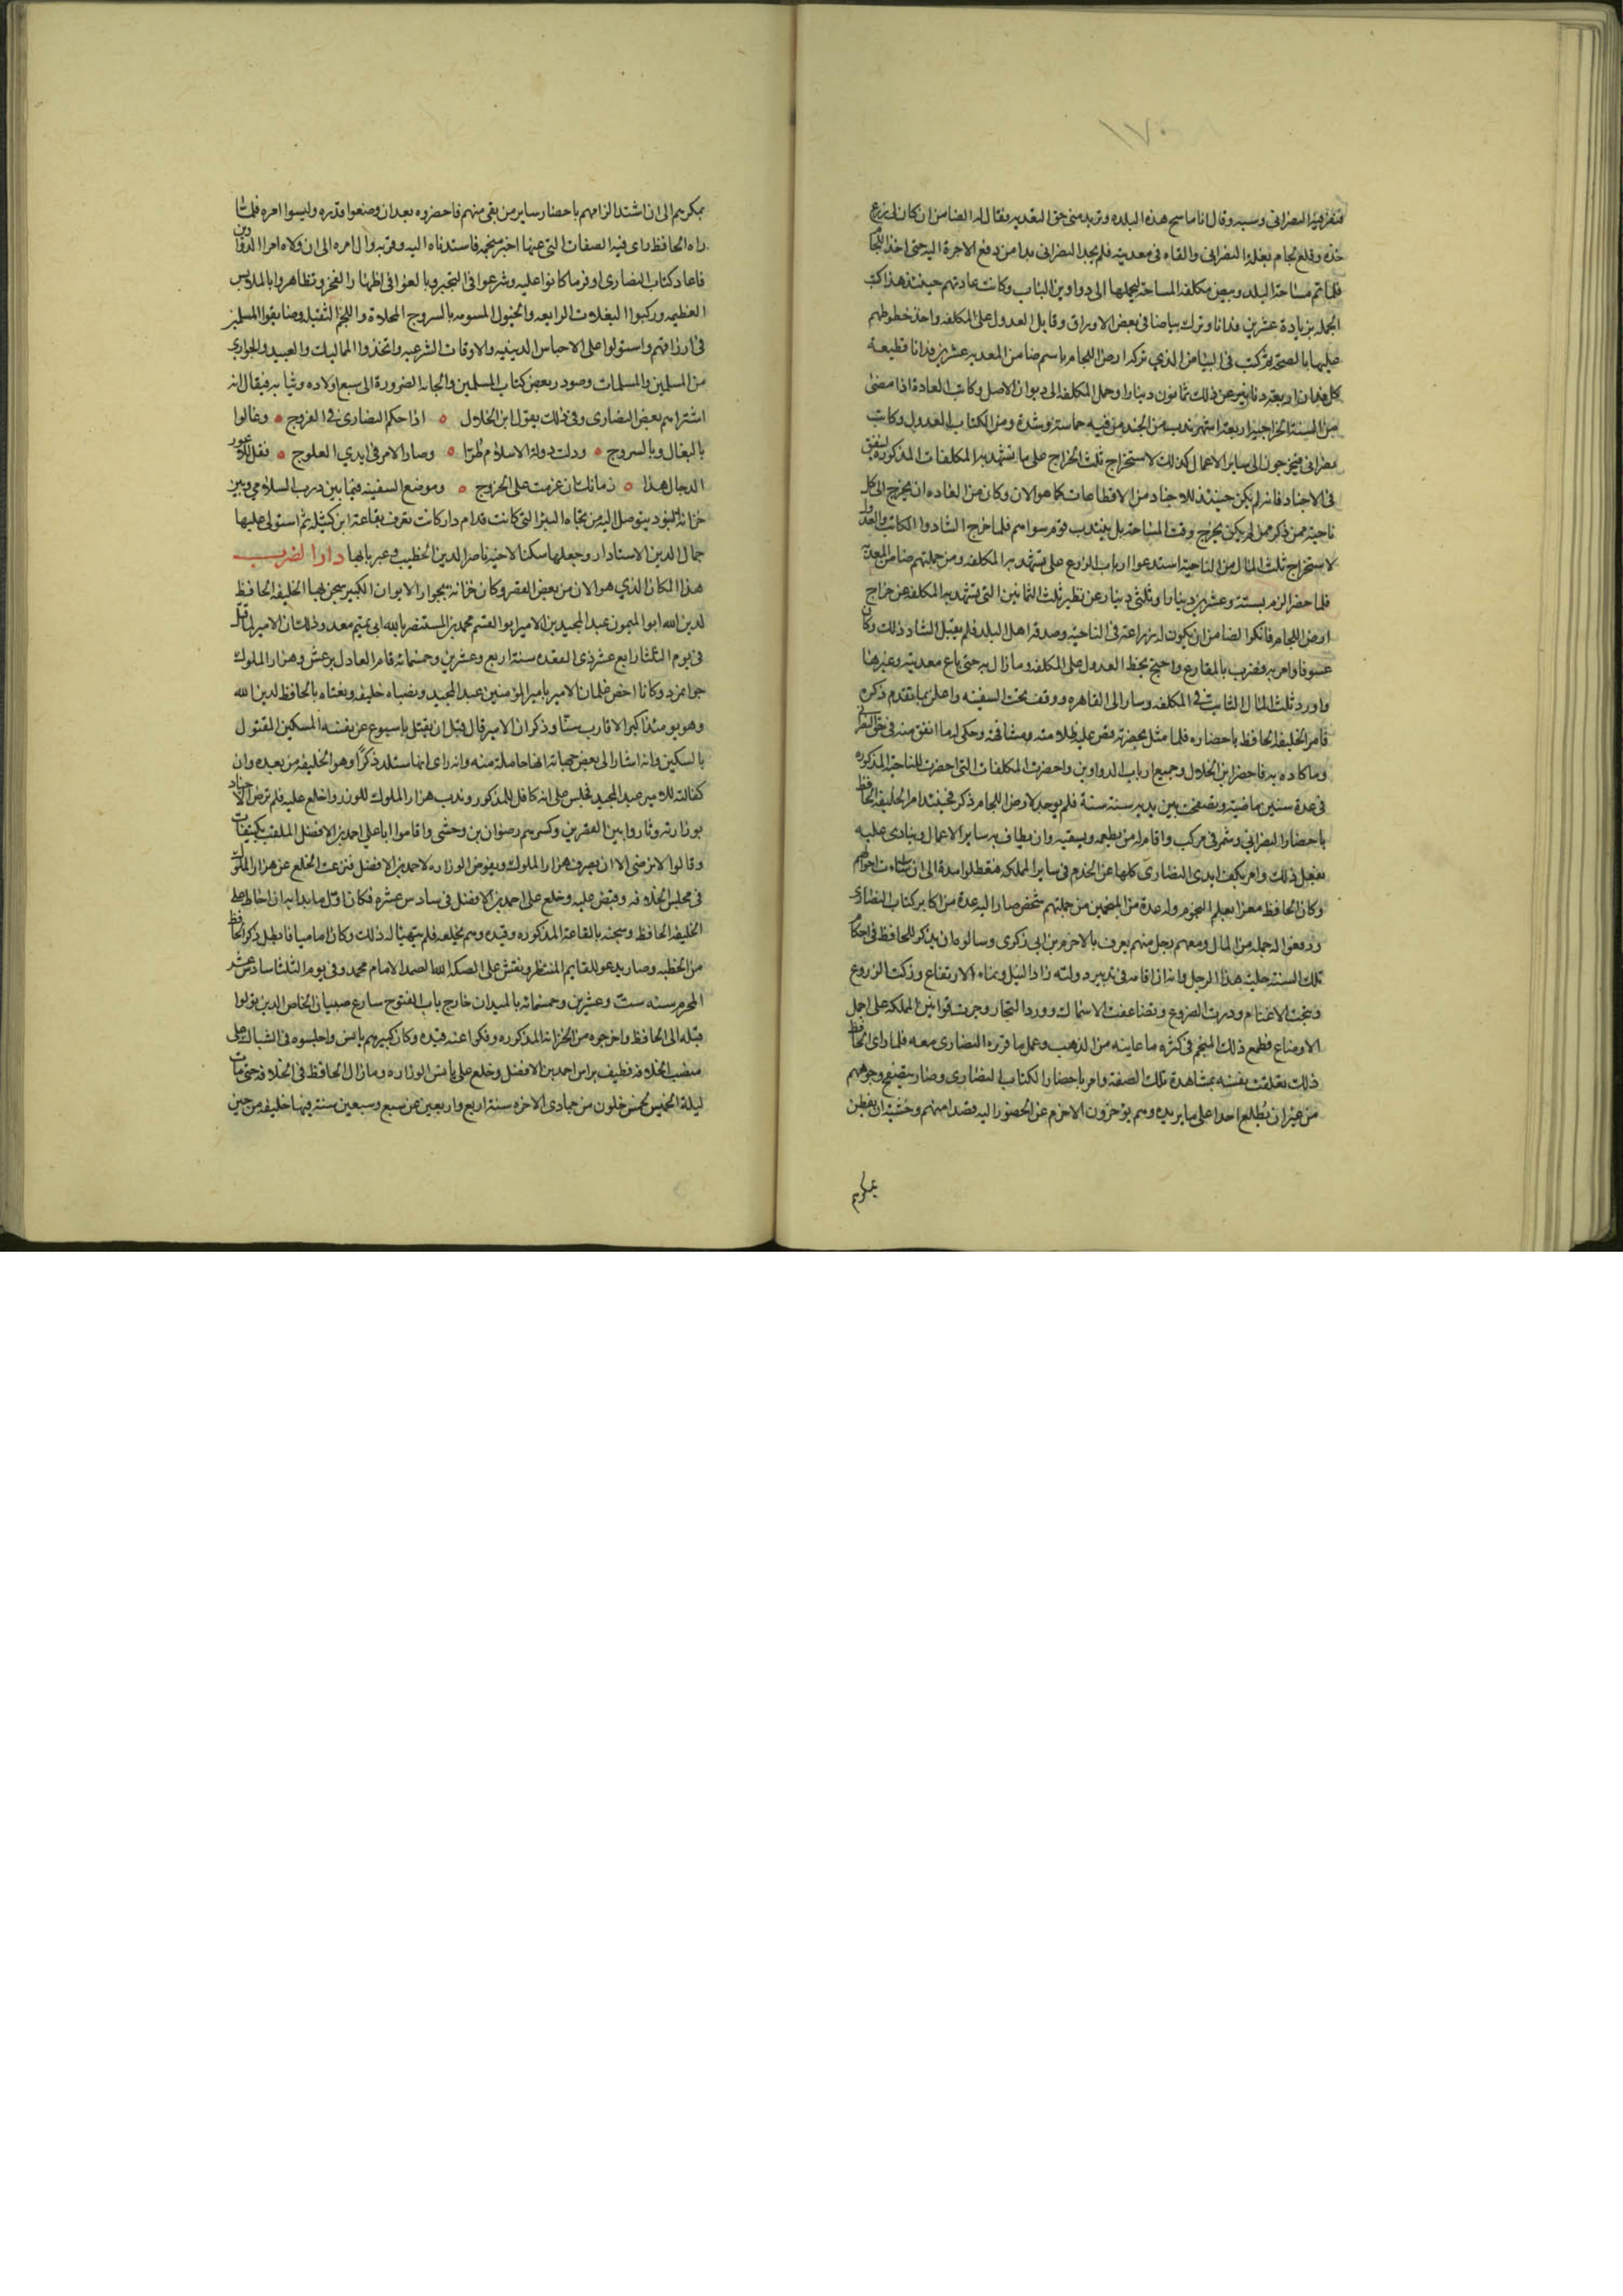 ١٧٠
فنفر فيه النصراني وسبه وقال انا ماسح هذه البلده وتريد مني حق التعديه فقال له الضامن ان كان لي زرع
خذه وقلع لجام بغلة النصراني والقاه في معديته فلم يجد النصراني بدا من دفع الاجرة اليه حتى اخذ اللجا
فلما تم مساحة البلد وبيض مكلفة المساحة ليحملها الى دواوين الباب وكانت عادتهم حينئذ هذا كتب
الجمله بزيادة عشرين فدانا وترك بياضا في بعض الاوراق وقابل العدول على المكلفه واخذ خطوطهم
عليها بالصحة ثم كتب في البياض الذي تركه ارض اللجام باسم ضامن المعديه عشرين فدانا قطيعة
كل فدان اربعة دنانير عن ذلك ثمانون دينارا وحمل المكلفة الى ديوان الاصل وكانت العادة اذا مضى
من السنة الخراجية اربعة اشهر ندب من الجند من فيه حماسة وشدة ومن الكتاب العدول وكاتب
نصراني فيخرجون الى ساير الاعمال كذلك لاستخراج ثلث الخراج على ما تشهد به المكلفات المذكوره لينفق
في الاجناد فانه لم يكن حينئذ للاجناد من الاقطاعات كما هو الان وكان من العاده ان يخرج الى كل
ناحية ممن ذكر ممن لم يكن خرج وقت المساحة بل ينتدب قوم سواهم فلما خرج الشاد والكاتب والعدول
لاستخراج ثلث المال من الناحية استدعوا ارباب الزرع على تشهد به المكلفه ومن جملتهم ضامن المعدية
فلما حضر الزم بستة وعشرين دينارا وثلثي دينار عن نظير ثلث الثمانين التي تشهد به المكلفه عن خراج
ارض اللجام فانكر الضامن ان يكون له زراعة في الناحية وصدقه اهل البلد فلم يقبل الشاد ذلك وكان
عسوفا وامر به فضرب بالمقارع واحتج بخط العدول على المكلفه وما زال به حتى باع معديته وغيرها
واورد ثلث المال الثابت في المكلفه وسار الى القاهره ووقف تحت السفينه واعلن بما تقدم ذكره
فامر الخليفه الحافظ باحضاره فلما مثل بحضرته قص عليه ظلامته مشافهة وحكى له ما اتفق منه في حق النصراني
وما كاده به فاحضر ابن الخلال وجميع ارباب الدواوين واحضرت المكلفات التي احضرت للناحية المذكوره
في عدة سنين ماضية وتصفحت بين يديه سنة سنة فلم يوجد لارض اللجام ذكر فحينئذ امر الخليفه الحافظ
باحضار النصراني وسمر في مركب واقام له من يطعمه ويسقيه وان يطاف به ساير الاعمال وينادى عليه
ففعل ذلك وامر بكف ايدي النصارى كلها عن الخدم في ساير المملكه فتعطلوا مدة الى ان ساءت احوالهم
وكان الحافظ مغرا بعلم النجوم وله عدة من المنجمين من جملتهم شخص صار اليه عدة من اكابر كتاب النصارى
ودفعوا له جمله من المال ومعهم رجل منهم يعرف بالاخرم بن ابي زكري وسالوه ان يذكر للحافظ في احكام
تلك السنة حلية هذا الرجل وانه ان اقامه في تدبير دولته زاد النيل ونماء الارتفاع وزكت الزروع
ونتجت الاغنام ودرت الضروع وتضاعفت الاسماك وورد التجار وجرت قوانين المملكه على اجمل
الاوضاع فطمع ذلك المنجم في كثرة ما عاينه من الذهب وعمل ما قرره النصارى معه فلما راى الحافظ
ذلك تعلقت نفسه بمشاهدة تلك الصفة وامر باحضار الكتاب النصارى وصار يتصفح وجوههم
من غير ان يطلع احدا على ما يريده وهم يوخرون الاخرم عن الحضور اليه قصدا منهم وخشية ان يفطن
بمكرهم
بمكرهم الى ان اشتد الزامهم باحضار ساير من بقي منهم فاحضروه بعد ان وضعوا قدره وليسوا امره فلما
راه الحافظ راى فيه الصفات التي عينها اخبر منجمه فاستدناه اليه وقربه وال امره الى ان ولاه امر الدواوين
فاعاد كتاب النصارى اوفر ما كانوا عليه وشرعوا في التجبر وبالغوا في اظهار الفخر وتظاهروا بالملابس
العظيمه وركبوا البغلات الرايعه والخيول المسومه بالسروج المحلاة واللجم الثقيله وضايقوا المسلمين
في ارزاقهم واستولوا على الاحباس الدينيه والاوقاف الشرعيه واتخذوا المماليك والعبيد والجواري
من المسلمين والمسلمات وصودر بعض كتاب المسلمين والجاته الضرورة الى بيع اولاده وبناته فيقال انه
اشتراهم بعض النصارى وفي ذلك يقول ابن الخلال ۝ اذا حكم النصارى في الفروج ۝ وغالوا
بالبغال وبالسروج ۝ وذلت دولة الاسلام طرا ۝ وصار الامر في ايدي العلوج ۝ فقل للاعور
الدجال هذا ۝ زمانك ان عزمت على الخروج ۝ وموضع السفينه فيما بين درب السلامي وبين
خزانة البنود يتوصل اليه من تجاه البئر التي كانت قدام دار كانت تعرف بقاعة ابن كتيله ثم استولى عليها
جمال الدين الاستادار وجعلها سكنا لاخيه ناصر الدين الخطيب وغير بابها دار الضرب
هذا المكان الذي هو الان من بعض القصر وكان خزانة بجوار الايوان الكبير سجن بها الخليفه الحافظ
لدين الله ابو الميمون عبد المجيد بن الامير ابو القسم محمد بن المستنصر بالله ابي تميم معد وذلك ان الامر لما قتل
في يوم الثلثا رابع عشر ذي القعده سنة اربع وعشرين وخمسمائه قام العادل برغش وهزار الملوك
جوامرد وكانا اخص غلمان الامر بامير المؤمنين عبد المجيد ونصباه خليفه ونعتاه بالحافظ لدين الله
وهو يومئذ اكبر الاقارب سنا وذكر ان الامر قال قبل ان يقتل باسبوع عن نفسه المسكين المقتول
بالسكين وانه اشار الى بعض جهاته انها حامله منه وانه راى انها ستلد ذكرا وهو الخليفه من بعده وان
كفالته للامير عبد المجيد فجلس على انه كافل للمذكور وندب هزار الملوك للوزر واخلع عليه فلم ترض الاجناد
بوزارته وثاروا بين القصرين وكبيرهم رضوان بن وحشي واقاموا ابا علي احمد بن الافضل الملقب بكتيفات
وقالوا لا نرضى الا ان يصرف هزار الملوك ويفوض الوزاره لاحمد بن الافضل فنزعت الخلع عن هزار الملوك
في مجلس الخلافه وقبض عليه وخلع على احمد بن الافضل في سادس عشره فكان اول ما بدا به ان احاط على
الخليفه الحافظ وسجنه بالقاعة المذكوره وقيده وهم بخلعه فلم يتهيا له ذلك وكان اماميا فابطل ذكر الحافظ
من الخطبه وصار يدعو للقايم المنتظر ونقش على السكه الله الصمد الامام محمد وفي يوم الثلثا سادس عشر
المحرم سنه ست وعشرين وخمسمائه بالميدان خارج باب الفتوح سارع صبيان الخاص الذين تولوا
قتله الى الحافظ واخرجوه من الخزانة المذكوره وفكوا عنه قيده وكان كبيرهم يانس واجلسوه في الشباك على
منصب الخلافه وطيف براس احمد بن الافضل وخلع على يانس الوزاره وما زال الحافظ في الخلافه حتى مات
ليلة الخميس لخمس خلون من جمادى الاخره سنة اربع واربعين عن سبع وسبعين سنة منها خليفه من حين